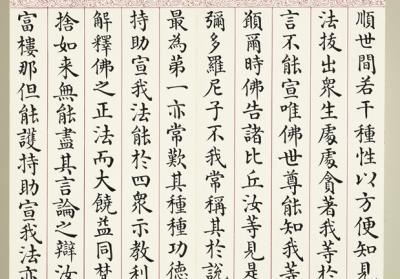 順世間若干種性以方便知見
法拔出眾生處處貪著我等於
言不能宣唯佛世尊能知我等
願爾時佛告諸比丘汝等見是
彌多羅尼子不我常稱其於說
最為第一亦常歎其種種功德
持助宣我法能於四眾示教利
解釋佛之正法而大饒益同梵
捨如來無能盡其言論之辯汝
富樓那但能護持助宣我法亦